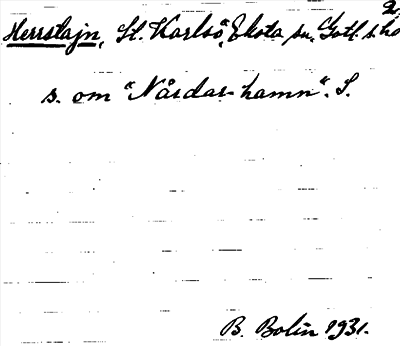 Herrstajn, St. Karlsö, Eksta sn. Gotl. s. ho
s. om "Nårdar-hamn". S.
B. Bolin 1931.